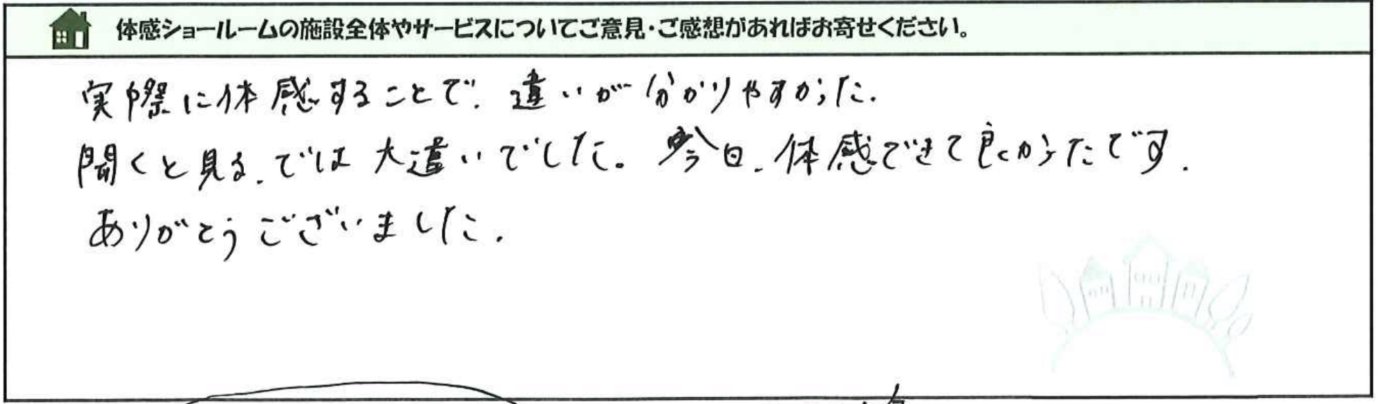 体感ショールームの施設全体やサービスについてご意見・ご感想があればお寄せください。
実際に体感することで、違いが分かりやすかった.
聞くと見る、では大違いでした。今日、体感できて良かったです.
ありがとうございました.